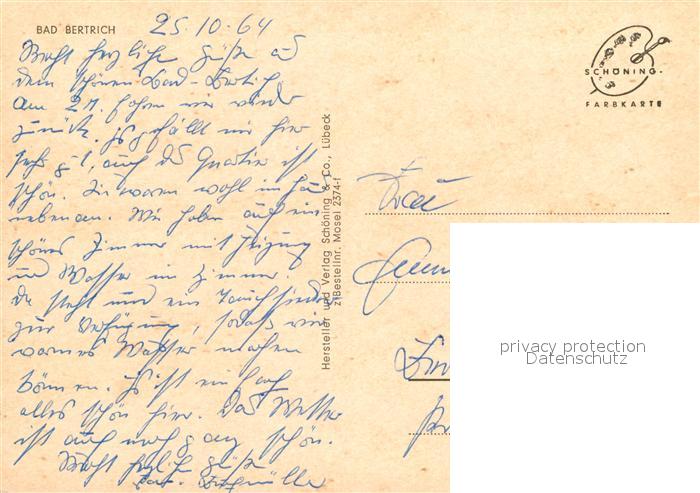 BAD BERTRICH
25.10.64
Recht herzliche Grüße aus
dem schönen Bad-Bertrich
Am 27. fahren wir wieder
zurück. es gefällt mir hier
sehr gut, auch das Quartier ist
schön. Sie waren wohl im Haus
nebenan. Wir haben auch ein
schönes Zimmer mit Heizung
und Wasser im Zimmer.
Da steht und ein Tauchsieder
zur Verfügung, sodaß wir
warmes Wasser machen
können. Es ist einfach
alles schön hier. Das Wetter
ist auch noch ganz schön.
Recht herzliche Grüße
Hersteller und Verlag Schöning & Co., Lübeck
Bestellnr. Mosel 2374-f
SCHÖNING-
FARBKARTE
Frau
privacy protection
Datenschutz